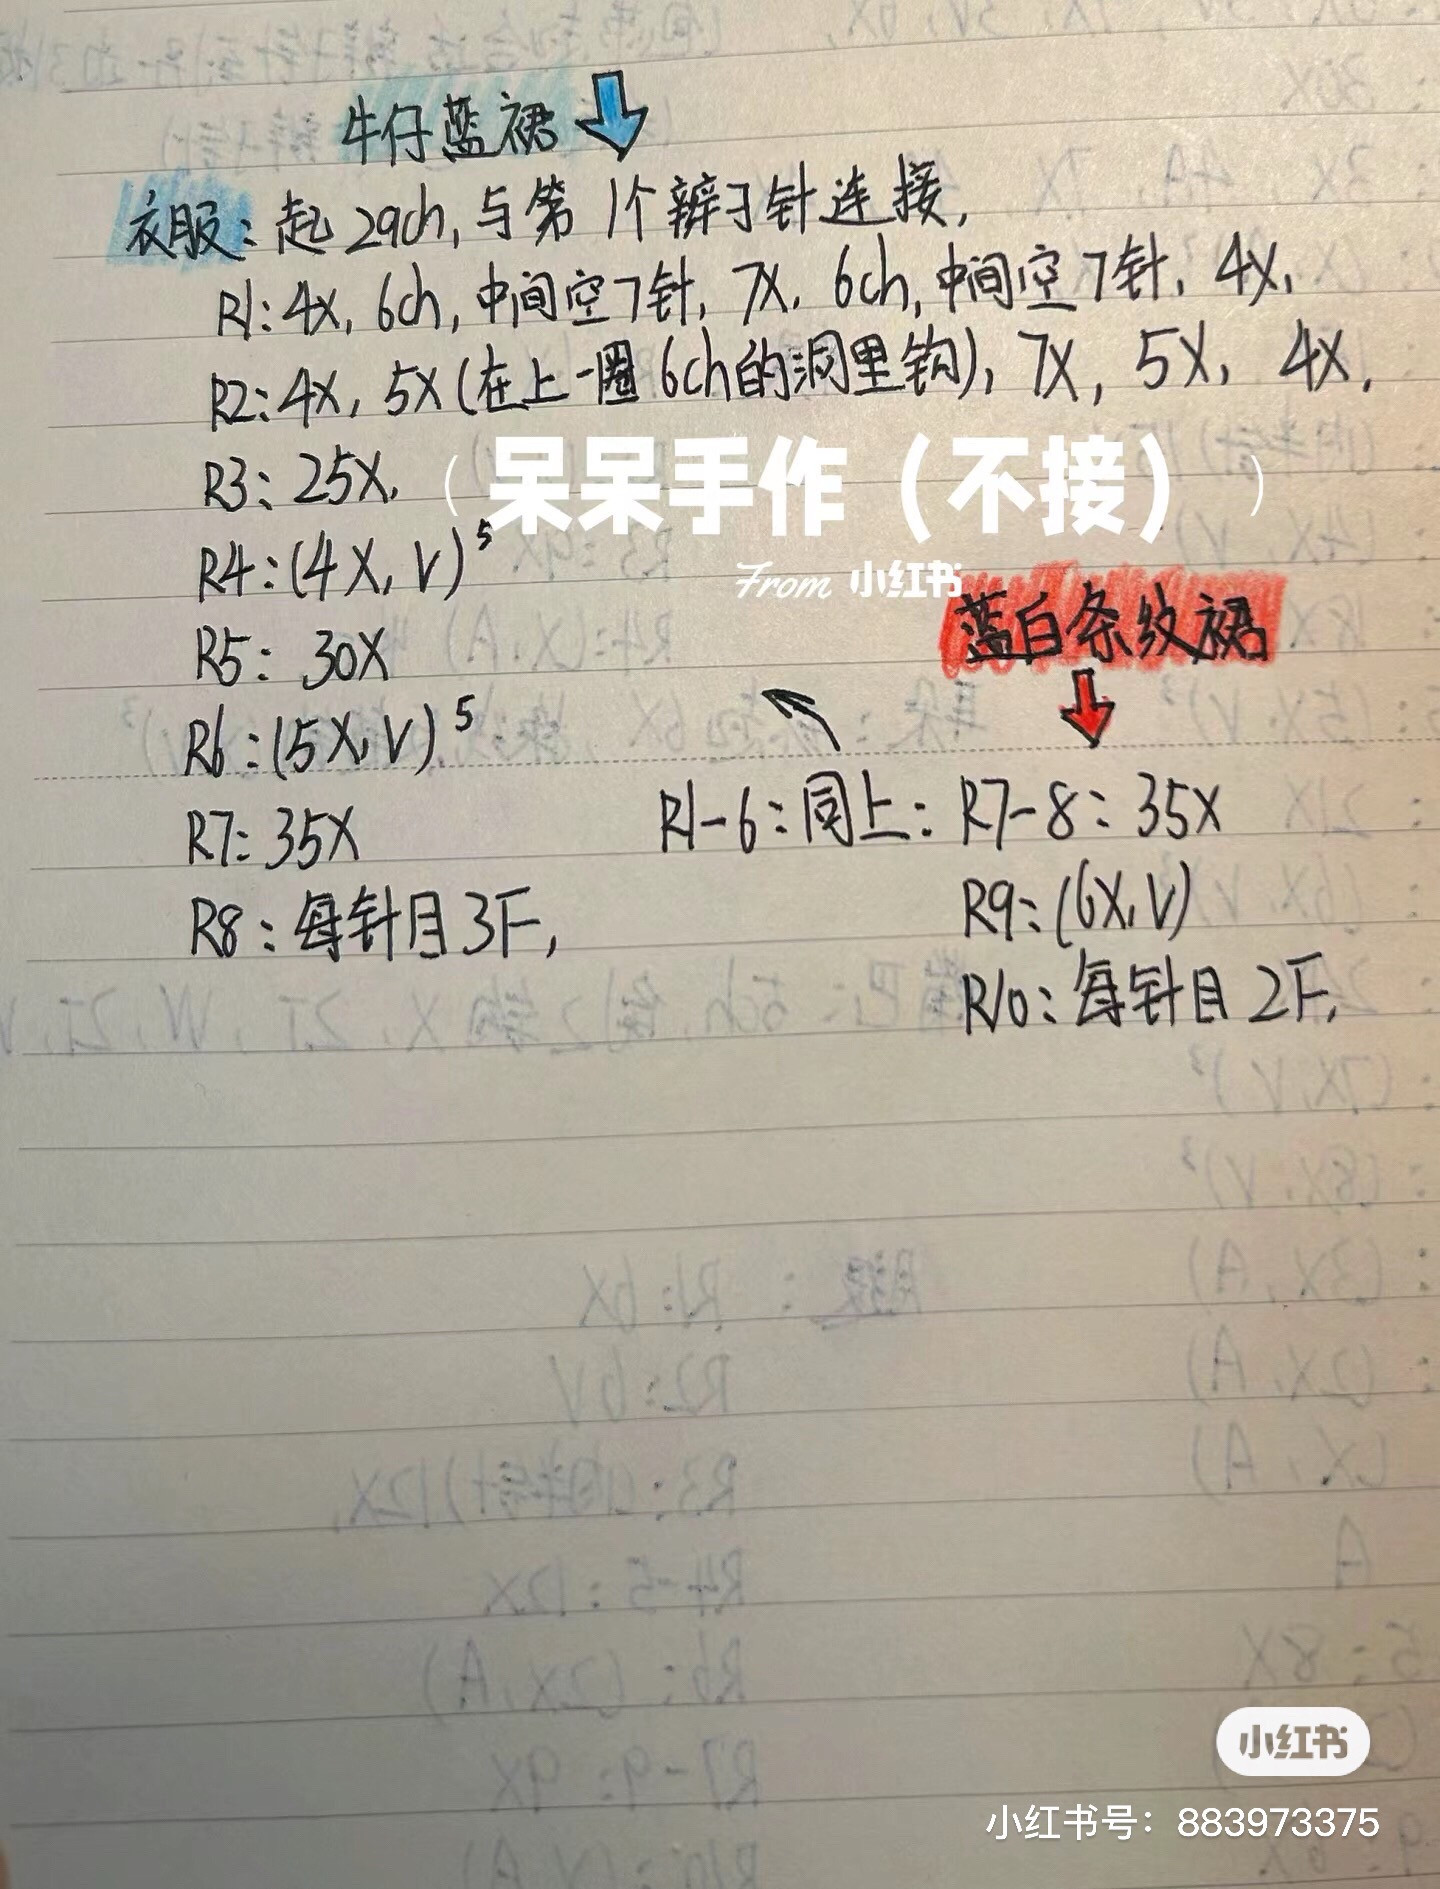 牛仔蓝裙
衣服：起29ch，与第1个辫子针连接，
R1：4X，6ch，中间空7针，7X，6ch，中间空7针，4X，
R2：4X，5X（在上一圈6ch的洞里钩），7X，5X，4X，
R3：25X，
（呆呆手作（不接））
From 小红书
R4：（4X，V）⁵
R5：30X
R6：（5X，V）⁵
R7：35X
R8：每针目3F，
蓝白条纹裙
R1-6：同上： R7-8：35X
R9：（6X，V）
R10：每针目2F，
小红书
小红书号：883973375